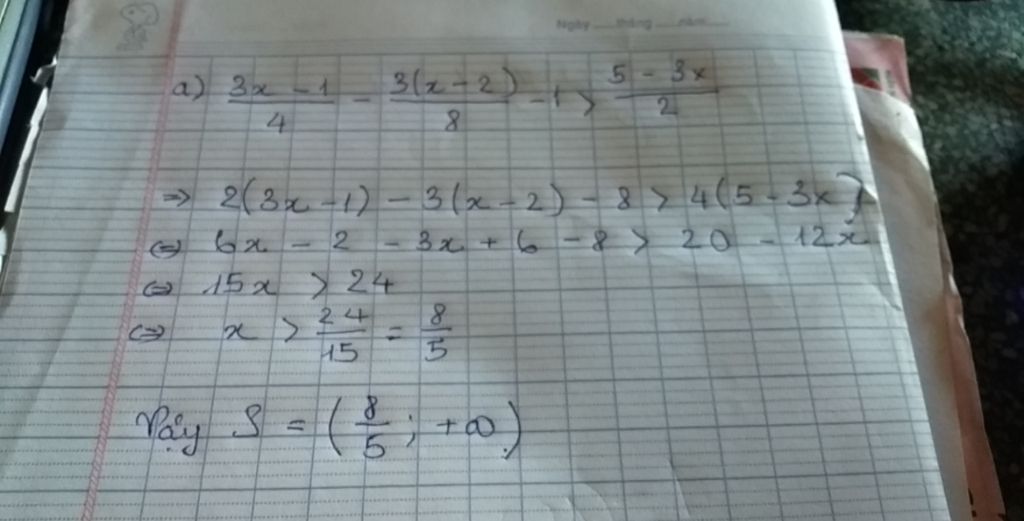 Ngày tháng năm
a) \frac{3x - 1}{4} - \frac{3(x - 2)}{8} - 1 > \frac{5 - 3x}{2}
⇒ 2(3x - 1) - 3(x - 2) - 8 > 4(5 - 3x)
⇔ 6x - 2 - 3x + 6 - 8 > 20 - 12x
⇔ 15x > 24
⇔ x > \frac{24}{15} = \frac{8}{5}
Vậy S = (\frac{8}{5}; +∞)